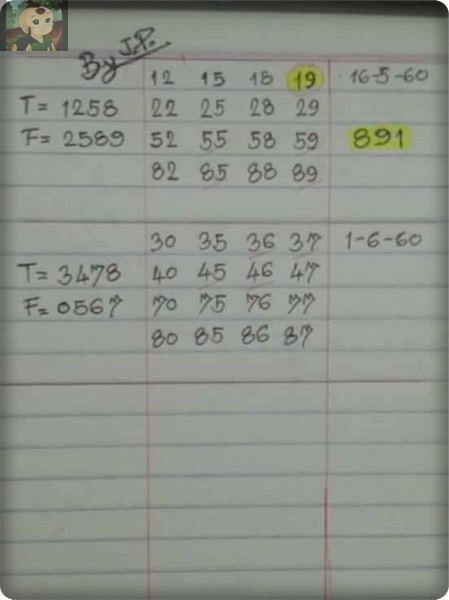 By J.P.
12 15 18 19 16-5-60
T = 1258 22 25 28 29
F= 2589 52 55 58 59 891
82 85 88 89
30 35 36 37 1-6-60
T= 3478 40 45 46 47
F= 0567 70 75 76 77
80 85 86 87